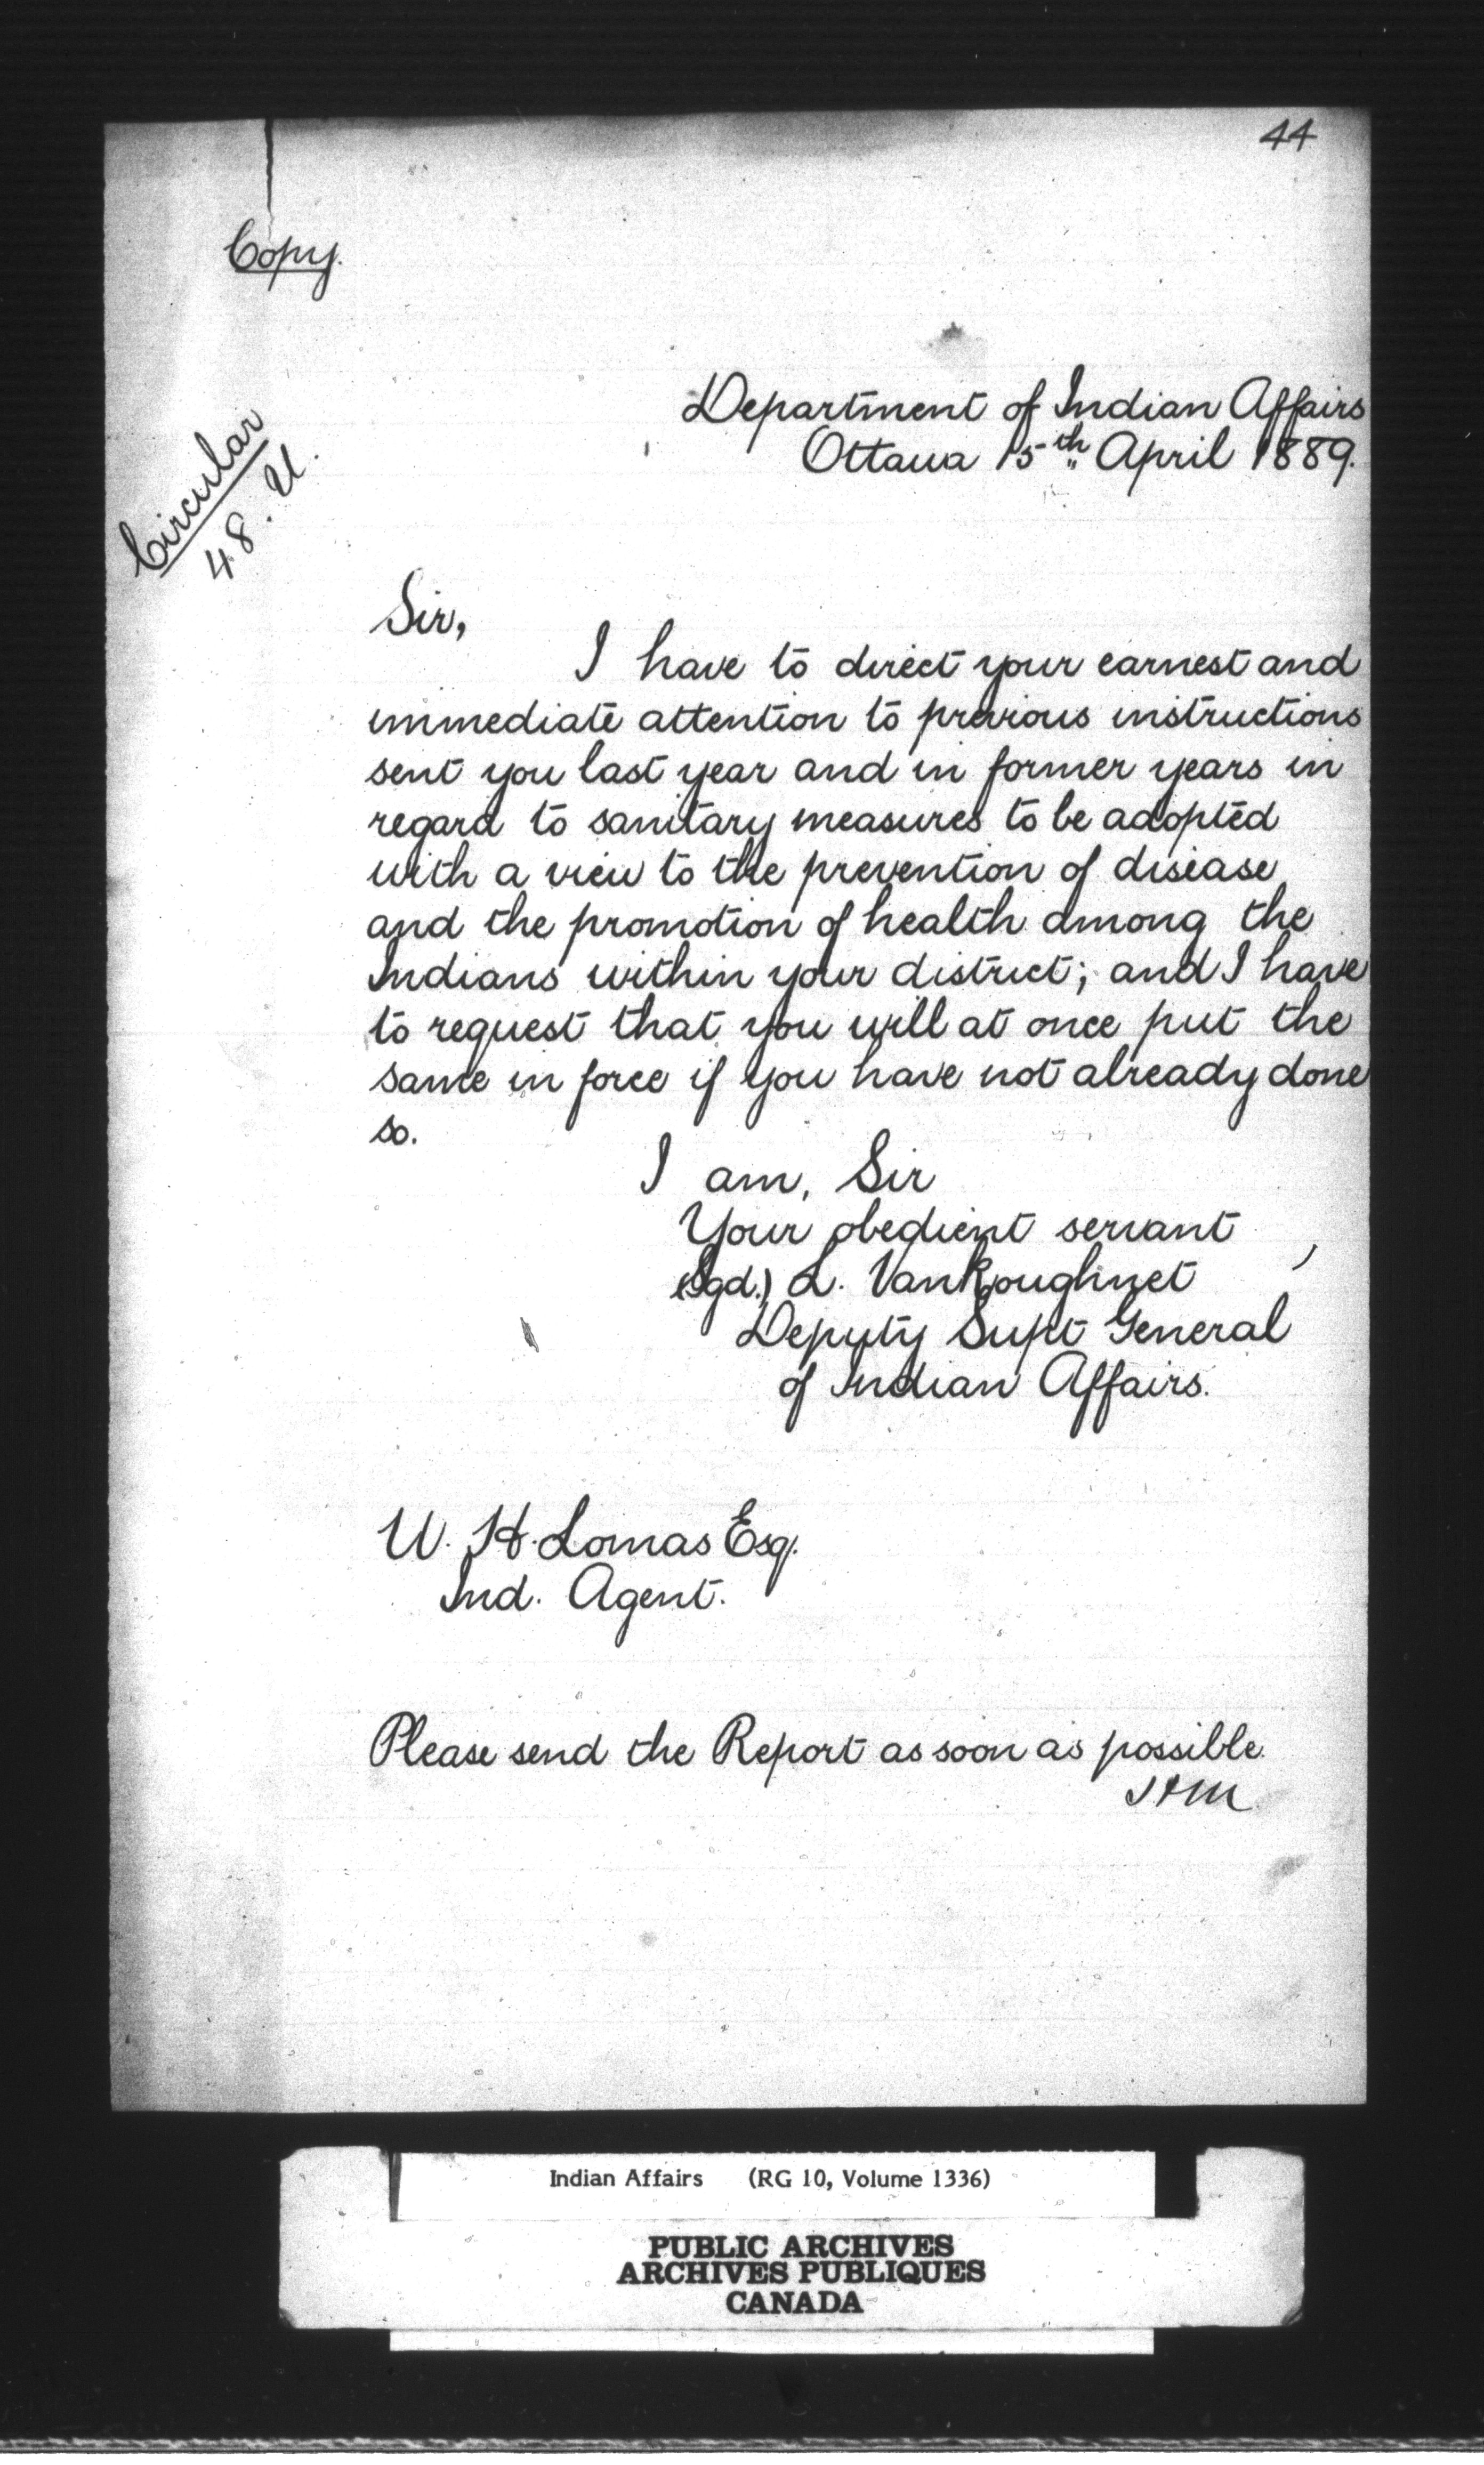 44
Copy.
Department of Indian Affairs
Ottawa 15th April 1889.
Circular
48. U.
Sir,
I have to direct your earnest and
immediate attention to previous instructions
sent you last year and in former years in
regard to sanitary measures to be adopted
with a view to the prevention of disease
and the promotion of health among the
Indians within your district; and I have
to request that you will at once put the
same in force if you have not already done
so.
I am, Sir
Your obedient servant,
(Sgd.) L. VanKoughnet
Deputy Supt General
of Indian Affairs.
W. H. Lomas Esq.
Ind. Agent.
Please send the Report as soon as possible.
Indian Affairs (RG 10, Volume 1336)
PUBLIC ARCHIVES
ARCHIVES PUBLIQUES
CANADA